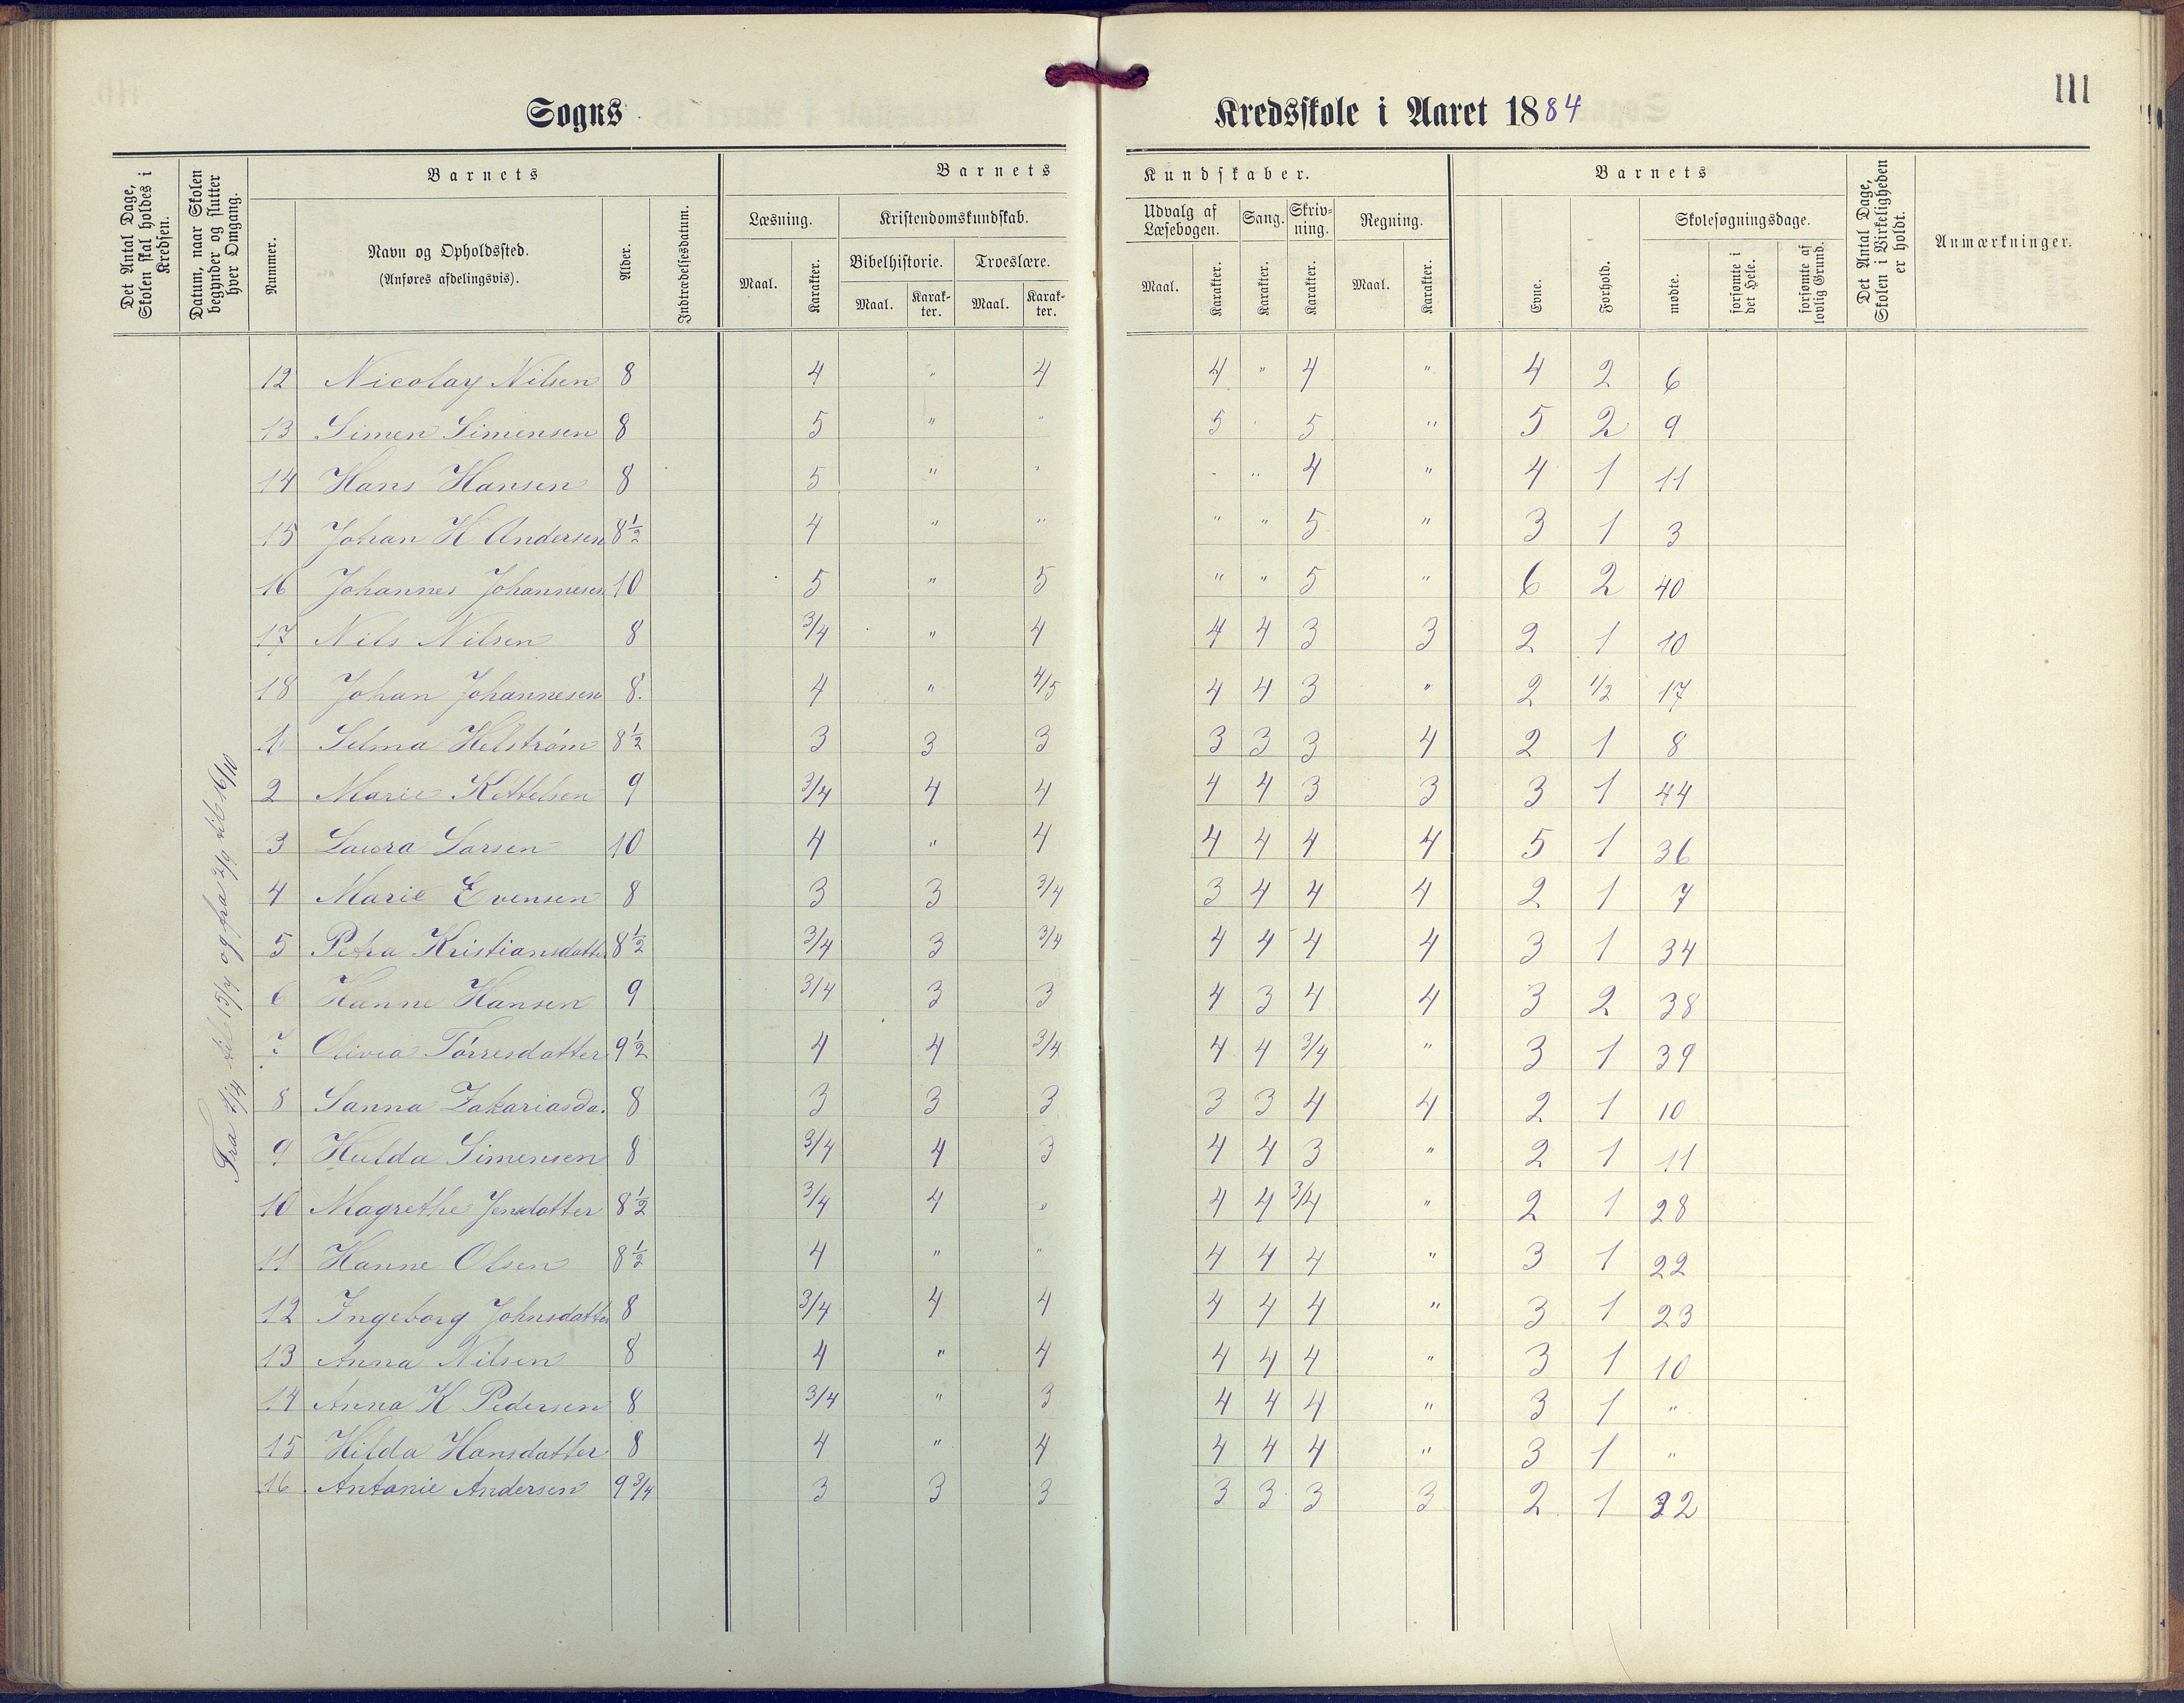 111
Sogns Kredsskole i Aaret 1884
Det Antal Dage, Skolen skal holdes i Kredsen.
Datum, naar Skolen begynder og slutter hver Omgang.
Barnets
Nummer.
Navn og Opholdssted.
(Anføres afdelingsvis).
Alder.
Indtrædelsesdatum.
Barnets Kundskaber.
Læsning. Kristendomskundskab. Udvalg af Læsebogen. Sang. Skrivning. Regning.
Bibelhistorie. Troeslære.
Maal. Karakter. Maal. Karakter. Maal. Karakter. Maal. Karakter. Karakter. Karakter. Maal. Karakter.
Barnets
Evne. Forhold. Skolesøgningsdage.
mødte. forsømte i det Hele. forsømte af lovlig Grund.
Det Antal Dage, Skolen i Virkeligheden er holdt.
Anmærkninger.
12 Nicolay Nilsen 8 4 " 4 4 " 4 " 4 2 6
13 Simen Simensen 8 5 " " 5 " 5 " 5 2 9
14 Hans Hansen 8 5 " " " " 4 " 4 1 11
15 Johan H Andersen 8½ 4 " " " " 5 " 3 1 3
16 Johannes Johannesen 10 5 " 5 " " 5 " 6 2 40
17 Nils Nilsen 8 3/4 " 4 4 4 3 3 2 1 10
18 Johan Johannesen 8. 4 " 4/5 4 4 3 " 2 1/2 17
1 Selma Helström 8½ 3 3 3 3 3 3 4 2 1 8
2 Marie Kettelsen 9 3/4 4 4 4 4 3 3 3 1 44
3 Laura Larsen 10 4 " 4 4 4 4 4 5 1 36
4 Marie Evensen 8 3 3 3/4 3 4 4 4 2 1 7
5 Petra Kristiansdatter 8½ 3/4 3 3/4 4 4 4 4 3 1 34
6 Hanne Hansen 9 3/4 3 3 4 3 4 4 3 2 38
7 Olivia Törresdatter 9½ 4 4 3/4 4 4 3/4 " 3 1 39
8 Sanna Zakariasda. 8 3 3 3 3 3 4 4 2 1 10
9 Hulda Simensen 8 3/4 4 3 4 4 3 " 2 1 11
10 Magrethe Jensdatter 8½ 3/4 4 " 4 4 3/4 " 2 1 28
11 Hanne Olsen 8½ 4 " " 4 4 4 " 3 1 22
12 Ingeborg Johnsdatter 8 3/4 4 4 4 4 4 " 3 1 23
13 Anna Nilsen 8 4 " 4 4 4 4 " 3 1 10
14 Anna K Pedersen 8 3/4 " 3 4 4 4 " 3 1 "
15 Hilda Hansdatter 8 4 " 4 4 4 4 " 3 1 "
16 Antonie Andersen 9 3/4 3 3 3 3 3 3 3 2 1 32